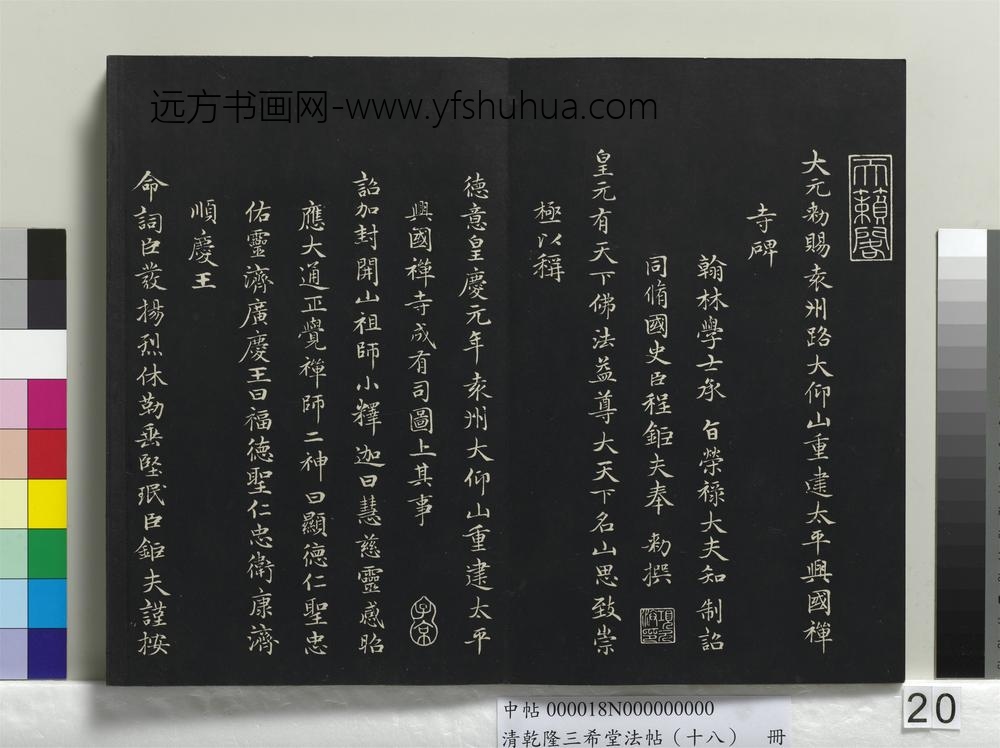 远方书画网-www.yfshuhua.com
天籟閣
大元勅賜袁州路大仰山重建太平興國禪
寺碑
翰林學士承旨榮祿大夫知制詔
同脩國史臣程鉅夫奉勅撰
皇元有天下佛法益尊大天下名山思致崇
極以稱
德意皇慶元年袁州大仰山重建太平
興國禪寺成有司圖上其事
詔加封開山祖師小釋迦曰慧慈靈感昭
應大通正覺禪師二神曰顯德仁聖忠
佑靈濟廣慶王曰福德聖仁忠衛康濟
順慶王
命詞臣發揚烈休勒垂堅珉臣鉅夫謹按
子京
中帖 000018N000000000
清乾隆三希堂法帖（十八） 冊
20